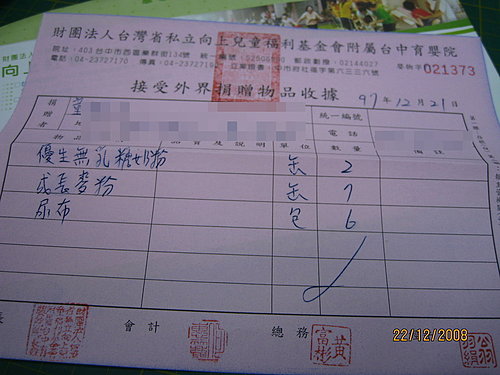 財團法人台灣省私立向上兒童福利基金會附屬台中育嬰院
院址：403台中市西區樂群街134號 統一編號：52506690 郵政劃撥：02144027
電話：04-23727170 傳真：04-2372719 立案證書：中市府社福字第六三三六號
021373
接受外界捐贈物品收據 97年12月21日
捐贈者 統一編號
電話
物品 品質及說明 單位 數量 備註
優生無乳糖奶粉 缶 2
成長麥粉 缶 7
尿布 包 6
會計 總務 黃富彬
22/12/2008